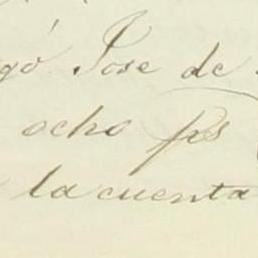 gó Jose de
ocho ps
la cuenta